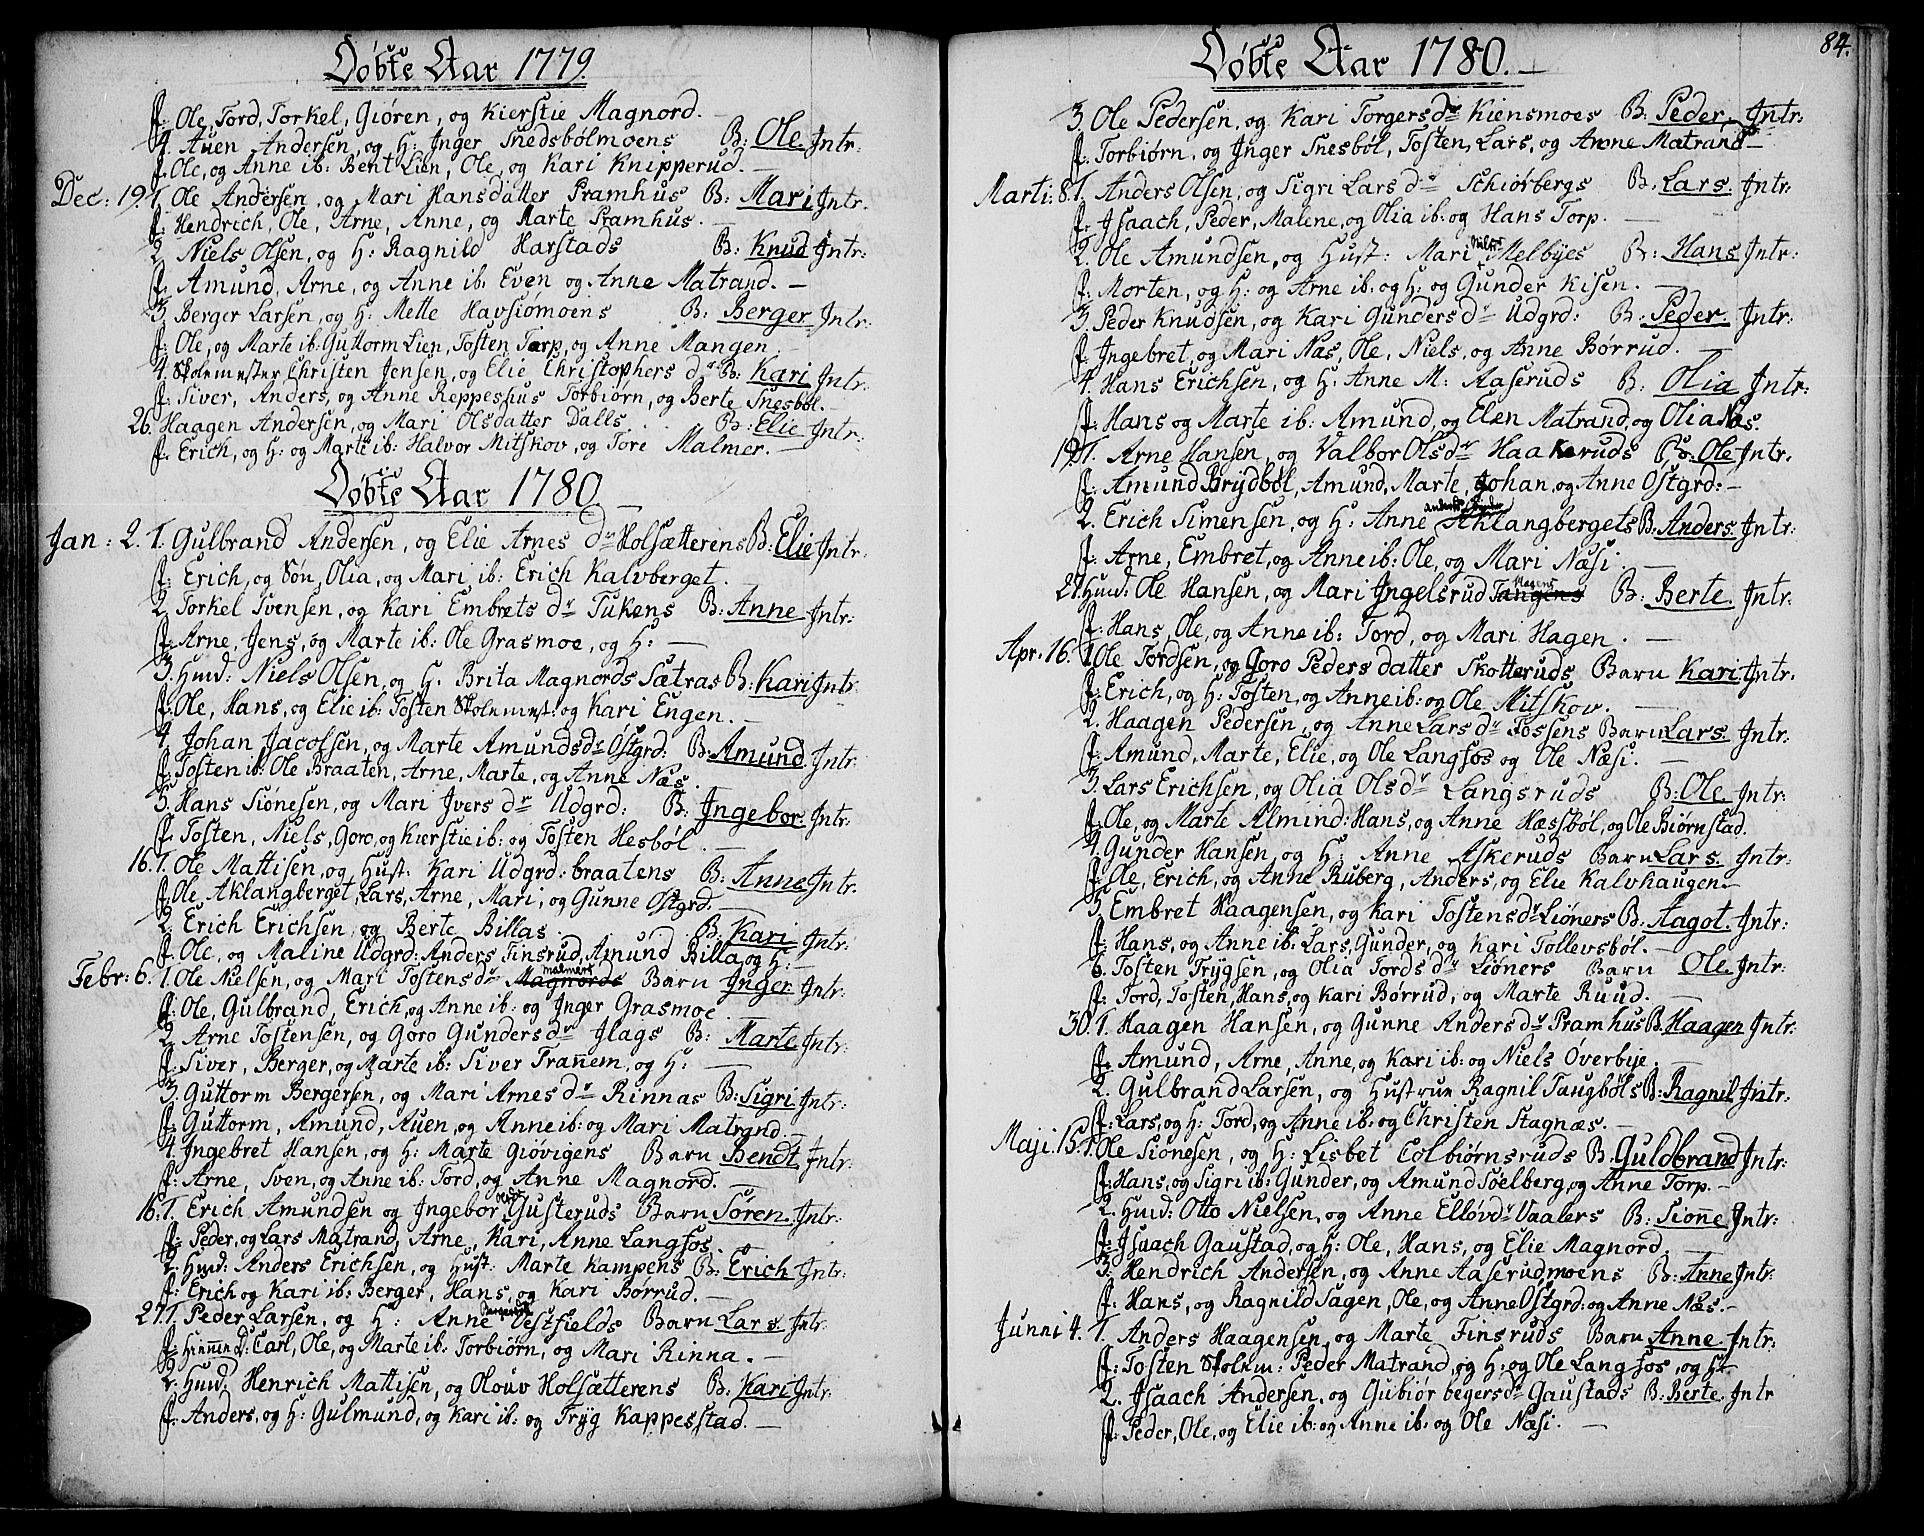 Døbte Aar 1779.
f: Ole, Tord, Torkel, Giøren, og Kierstie Magnord.
4. Auen Andersen, og H: Inger Snedsbølmoens B: Ole. Intr:
f: Ole, og Anne ib: Bent Lien, Ole, og Kari Knipperud.
Dec: 19. 1. Ole Andersen, og Mari Hansdatter Pramhus B: Mari Intr:
f: Hendrich, Ole, Arne, Anne, og Marte Pramhus.
2. Niels Olsen, og H: Ragnild Harstads B: Knud Intr:
f: Amund, Arne, og Anne ib: Even og Anne Matrand.
3. Berger Larsen, og H: Mette Havsiømoens B: Berger Intr:
f: Ole, og Marte ib: Guttorm Lien, Tosten Torp, og Anne Mangen.
4. Skolemester Christen Jensen, og Elie Christophers dr B: Kari Intr:
f: Siver, Anders, og Anne Reppeshus Torbiørn, og Berte Snesbøl.
26. Haagen Andersen, og Mari Olsdatter Dalls. B: Elie Intr:
f: Erich, og H: og Marte ib: Halvor Mitskov, og Tore Malmer.
Døbte Aar 1780
Jan: 2. 1. Gulbrand Andersen, og Elie Arnes dr Holsætterens B: Elie Intr:
f: Erich, og Søn, Olia, og Mari ib: Erich Kalvberget.
2. Torkel Svensen, og Kari Embrets dr Tukens B: Anne Intr:
f: Arne, Jens, og Marte ib: Ole Grasmoe, og H:
3. Huusmd: Niels Olsen, og H. Brita Magnords Sætras B: Kari Intr
f: Ole, Hans, og Elie ib: Tosten Skolemest: og Kari Engen.
4. Johan Jacobsen, og Marte Amundsdr Østgrd: B: Amund Intr:
f: Tosten ib: Ole Braaten, Arne, Marte, og Anne Næs.
5. Hans Sionesen, og Mari Ivers dr Udgrd: B: Ingebor: Intr:
f: Tosten, Niels, Goro, og Kierstie ib: og Tosten Hesbøl.
16. 1. Ole Mattisen, og Hust: Kari Udgrd: braatens B: Anne Intr.
f: Ole Aklangberget, Lars, Arne, Mari, og Gunne Østgrd.
2. Erich Erichsen, og Berte Billas. B: Kari Intr:
f: Ole, og Maline Udgrd: Anders Finsrud, Amund Billa, og H:
Febr: 6. 1. Ole Nielsen, og Mari Tostensdr Magnords Malmers Barn Inger Intr:
f: Ole, Gulbrand, Erich, og Anne ib: og Inger Grasmoe.
2. Arne Tostensen, og Goro Gundersdr Jlags B: Marte Intr:
f: Siver, Berger, og Marte ib: Siver Pranem, og H:
3. Guttorm Bergersen, og Mari Arnes dr Rinnas B: Sigri Intr:
f: Guttorm, Amund, Auen, og Anne ib: og Mari Matrand.
4. Ingebret Hansen, og H: Marte Giøvigens Barn Bendt Intr:
f: Arne, Sven, og Anne ib: Tord, og Anne Magnord.
16. 1. Erich Amundsen og Ingebor Gusteruds Barn Søren. Intr:
f: Peder, og Lars Matrand, Arne, Kari, Anne Langfos.
2. Huusmd: Anders Erichsen, og Hust: Marte Kampens B: Erich Intr:
f: Erich og Kari ib: Berger, Hans, og Kari Børrud.
27. 1. Peder Larsen, og H: Anne Vestfields Barn Lars. Intr:
f: Carl, Ole, og Marte ib: Torbiørn, og Mari Rinna.
2. Huusmd: Henrich Mattisen, og Olouv Holsætterens B: Kari Intr
f: Anders, og H: Gulmund, og Kari ib: og Tryg Kappesstad.
84.
Døbte Aar 1780.
3. Ole Pedersen, og Kari Torgersdr Kiensmoes B: Peder. Intr:
f: Torbiørn, og Inger Snesbøl, Tosten, Lars, og Anne Matrand
Marti: 8. 1. Anders Olsen, og Sigri Lars dr Schiørbergs B. Lars. Intr:
f: Isaach, Peder, Malene, og Olia ib: og Hans Torp.
2. Ole Amundsen, og Hust: Mari Melbyes B: Hans Intr:
f: Morten, og H: og Arne ib: og H: og Gunder Kisen.
3. Peder Knudsen, og Kari Gunders dr Udgrd: B: Peder. Intr:
f: Ingebret, og Mari Næs, Ole, Niels, og Anne Børrud.
4. Hans Erichsen, og H: Anne M: Aaseruds B: Olia Intr:
f: Hans og Marte ib: Amund, og Elen Matrand, og Olia Næs.
19. 1. Arne Hansen, og Valbor Olsdr Haakeruds B: Ole Intr:
f: Amund Brydbøl, Amund, Marte, Johan, og Anne Østgrd:
2. Erich Simensen, og H: Anne Aklangbergets B: Anders. Intr:
f: Arne, Embret, og Anne ib: Ole, og Mari Næsi.
27. Huusmd: Ole Hansen, og Mari Ingelsrud Tangens Hagens B: Berte. Intr:
f: Hans, Ole, og Anne ib: Tord, og Mari Hagen.
Apr: 16. 1. Ole Tordsen, og Goro Peders datter Skotteruds Barn Kari Intr.
f: Erich, og H: Tosten, og Anne ib: og Ole Mitskov.
2. Haagen Pedersen, og Anne Lars dr Fossens Barn Lars. Intr:
f: Amund, Marte, Elie, og Ole Langfos og Ole Næsi.
3. Lars Erichsen, og Olia Olsdr Langsruds B: Ole. Intr:
f: Ole, og Marte Almind: Hans, og Anne Hæssbøl, og Ole Biørnstad.
4. Gunder Hansen, og H: Anne Askeruds Barn Lars. Intr:
f: Ole, Erich, og Anne Ruberg, Anders, og Elie Kalvhaugen.
5. Embret Haagensen, og Kari Tostensdr Liøners B: Aagot. Intr:
f: Hans, og Anne ib: Lars, Gunder, og Kari Tollevsbøl.
6. Tosten Trygsen, og Olia Tords dr Liøners Barn Ole. Intr:
f: Tord, Tosten, Hans, og Kari Børrud, og Marte Ruud.
30. 1. Haagen Hansen, og Gunne Anders dr Pramhus B. Haagen Intr:
f: Amund, Arne, Anne, og Kari ib: og Niels Overbye.
2. Gulbrand Larsen, og Hustrue Ragnil Taugbøls B: Ragnil Intr:
f: Lars, og H: Tord, og Anne ib: og Christen Stagnæs.
Maji. 15. 1. Ole Sionesen, og H: Lisbet Colbiørnsruds B. Guldbrand Intr:
f: Hans, og Sigri ib: Gunder, og Amund Soelberg, og Anne Torp.
2. Huusmd: Otto Nielsen, og Anne Ellovdr Vaalers B: Sionne Intr:
f: Isaach Gaustad, og H: Ole, Hans, og Elie Magnord.
3. Hendrich Andersen, og Anne Aaserudmoens B: Anne Intr:
f: Hans, og Ragnild Sagen, Ole, og Anne Østgrd: og Anne Næs.
Junni 4. 1. Anders Haagensen, og Marte Finsruds Barn Anne. Intr:
f: Tosten Skolem: Peder Matrand, og H: og Ole Langfos, og H:
2. Isaach Andersen, og Gubiør begersdr Gaustads B: Berte. Intr
f: Peder, Ole, og Elie ib: og Anne ib: og Ole Næsi.